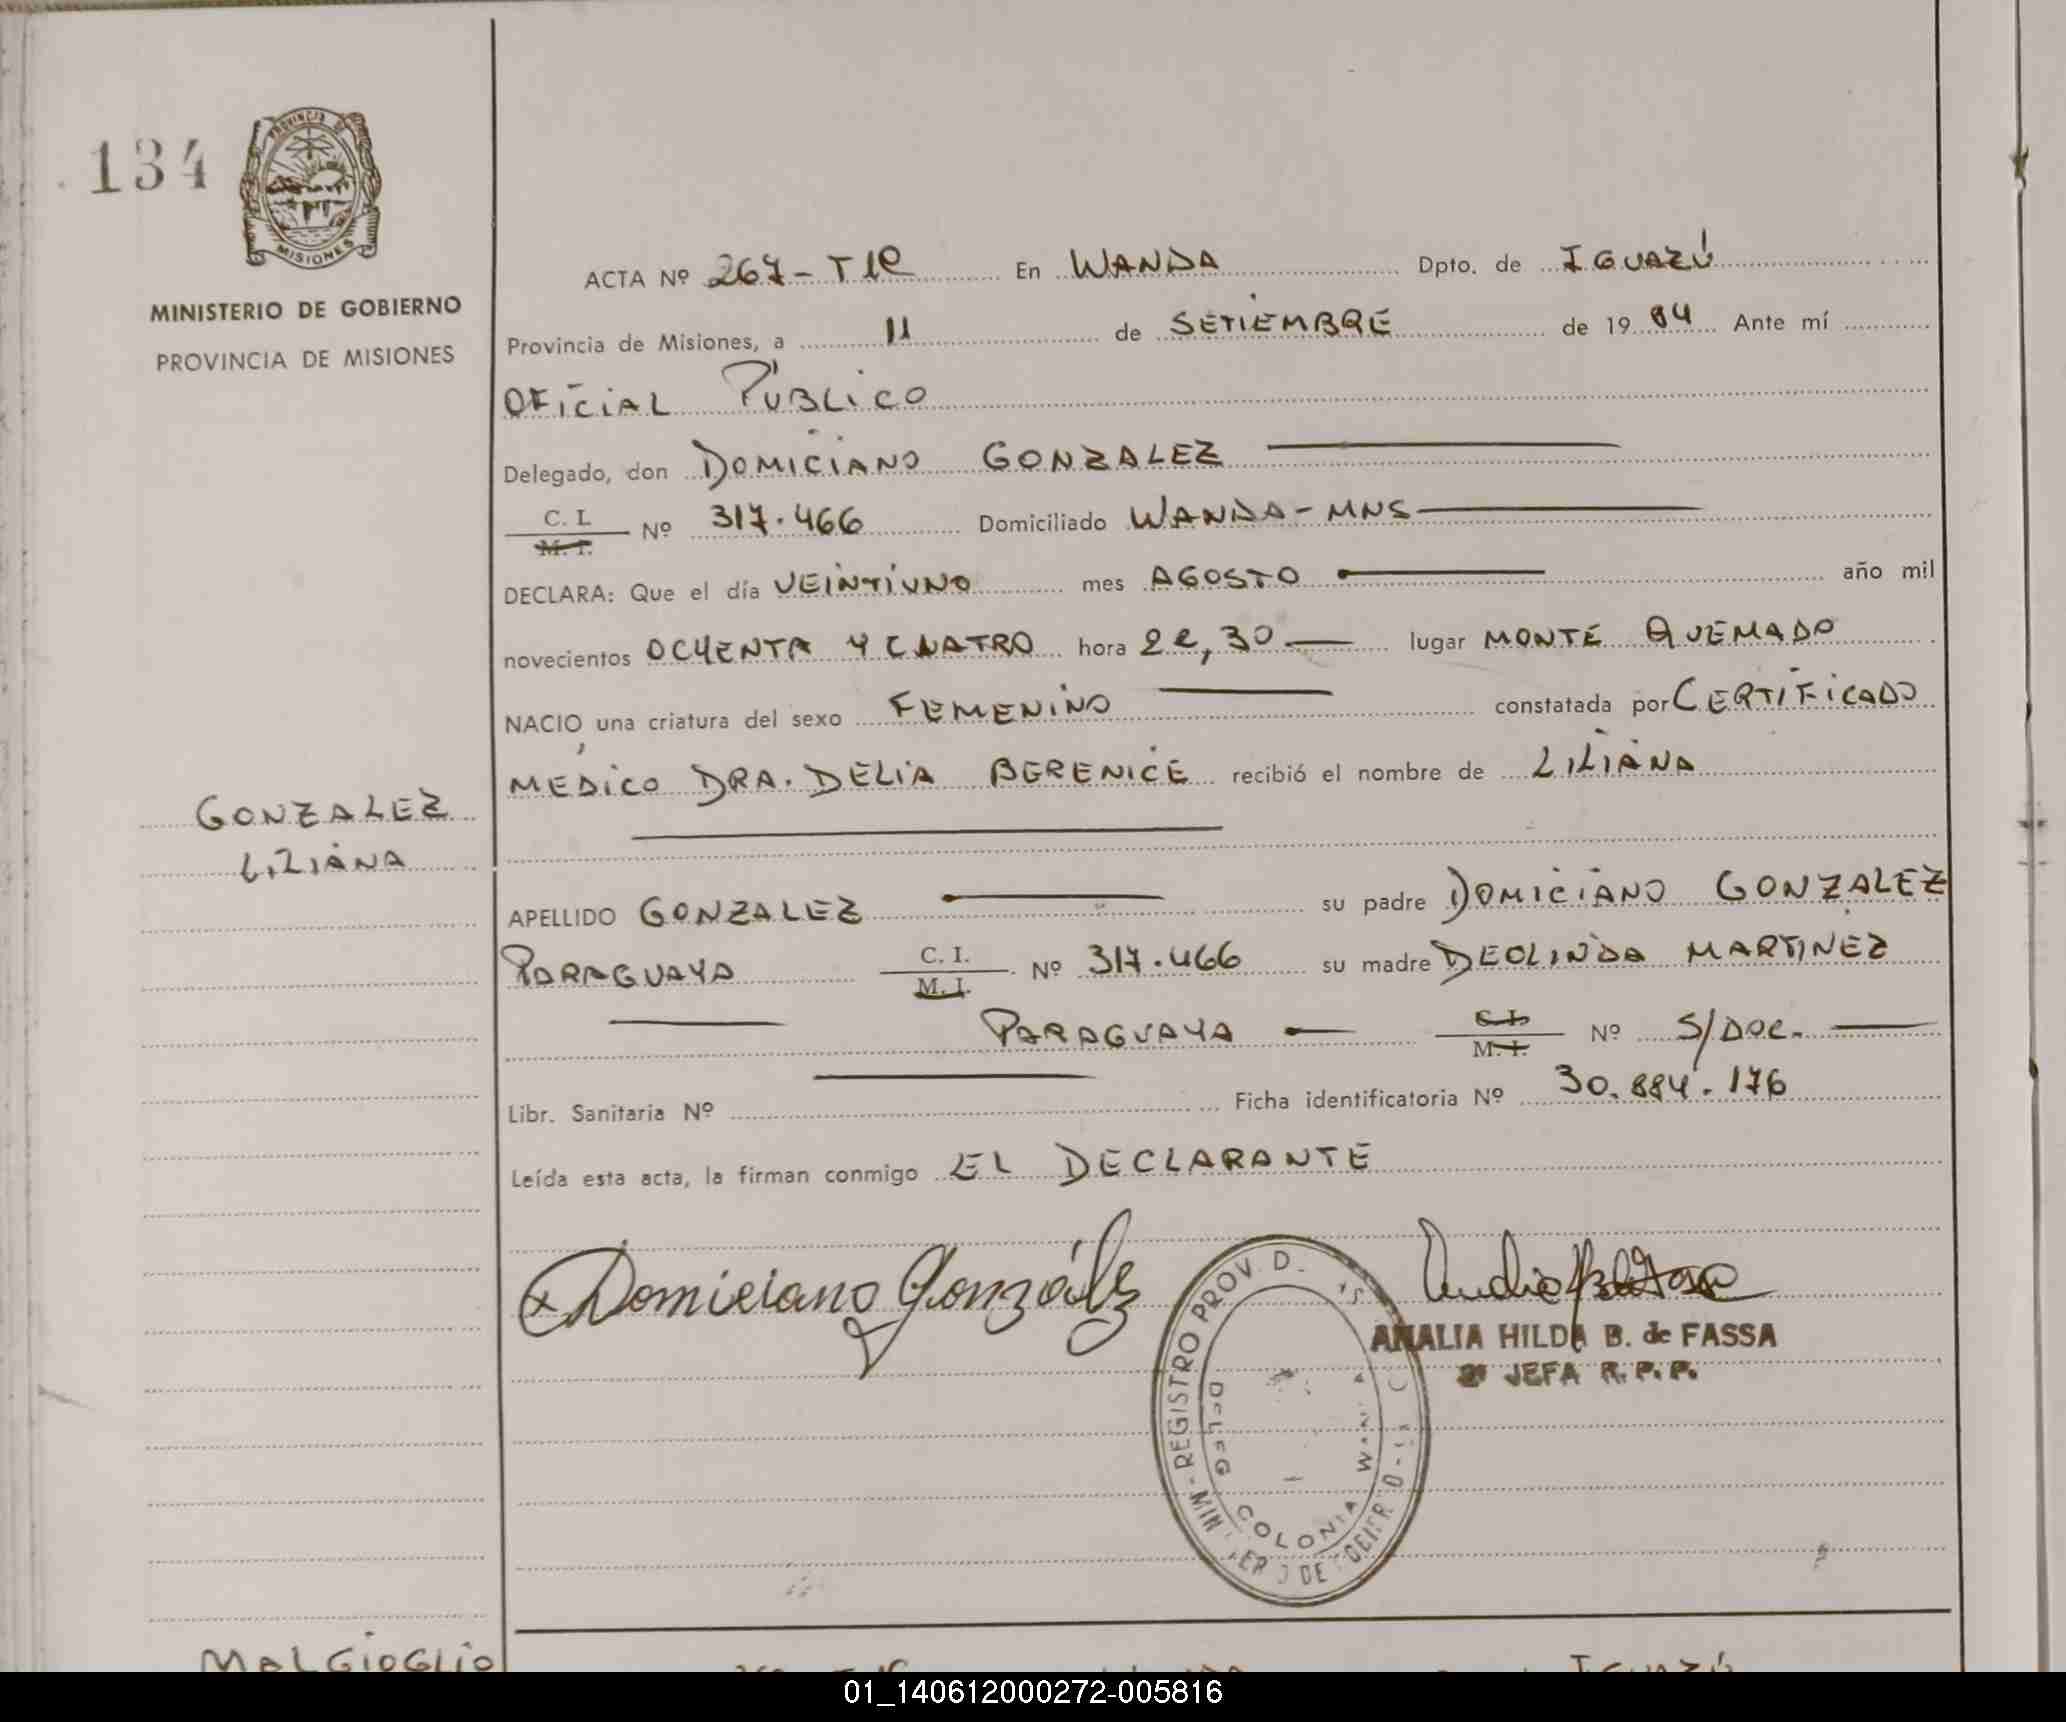 134
PROVINCIA DE
MISIONES
MINISTERIO DE GOBIERNO
PROVINCIA DE MISIONES
GONZALEZ
LILIANA
ACTA Nº 267-T1C En WANDA Dpto. de IGUAZÚ
Provincia de Misiones, a 11 de SETIEMBRE de 19 84 Ante mí
OFICIAL PÚBLICO
Delegado, don DOMICIANO GONZALEZ
C. I.
M. I.
Nº 317.466 Domiciliado WANDA-MNS
DECLARA: Que el día VEINTIUNO mes AGOSTO año mil
novecientos OCHENTA Y CUATRO hora 22,30 lugar MONTE QUEMADO
NACIO una criatura del sexo FEMENINO constatada por CERTIFICADO
MÉDICO DRA. DELIA BERENICE recibió el nombre de LILIANA
APELLIDO GONZALEZ su padre DOMICIANO GONZALEZ
PARAGUAYO C. I. Nº 317.466 su madre DEOLINDA MARTINEZ
M. I.
PARAGUAYA C. I. Nº S/DOC.
M. I.
Libr. Sanitaria Nº Ficha identificatoria Nº 30.884.176
Leída esta acta, la firman conmigo EL DECLARANTE
Domiciano González
ANALIA HILDA B. de FASSA
2ª JEFA R. P. P.
REGISTRO PROV. D
DELEG COLONIA WANDA
MALGIOGLIO
IGUAZÚ
01_140612000272-005816